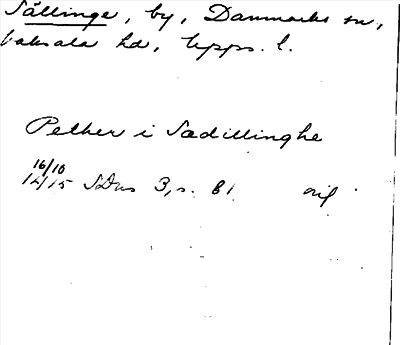 Sällinge, by, Danmarks sn,
Vaksala hd, Upps. l.
Pether i Sædillinghe
16/10
1415 SDns 3, s. 61 orig